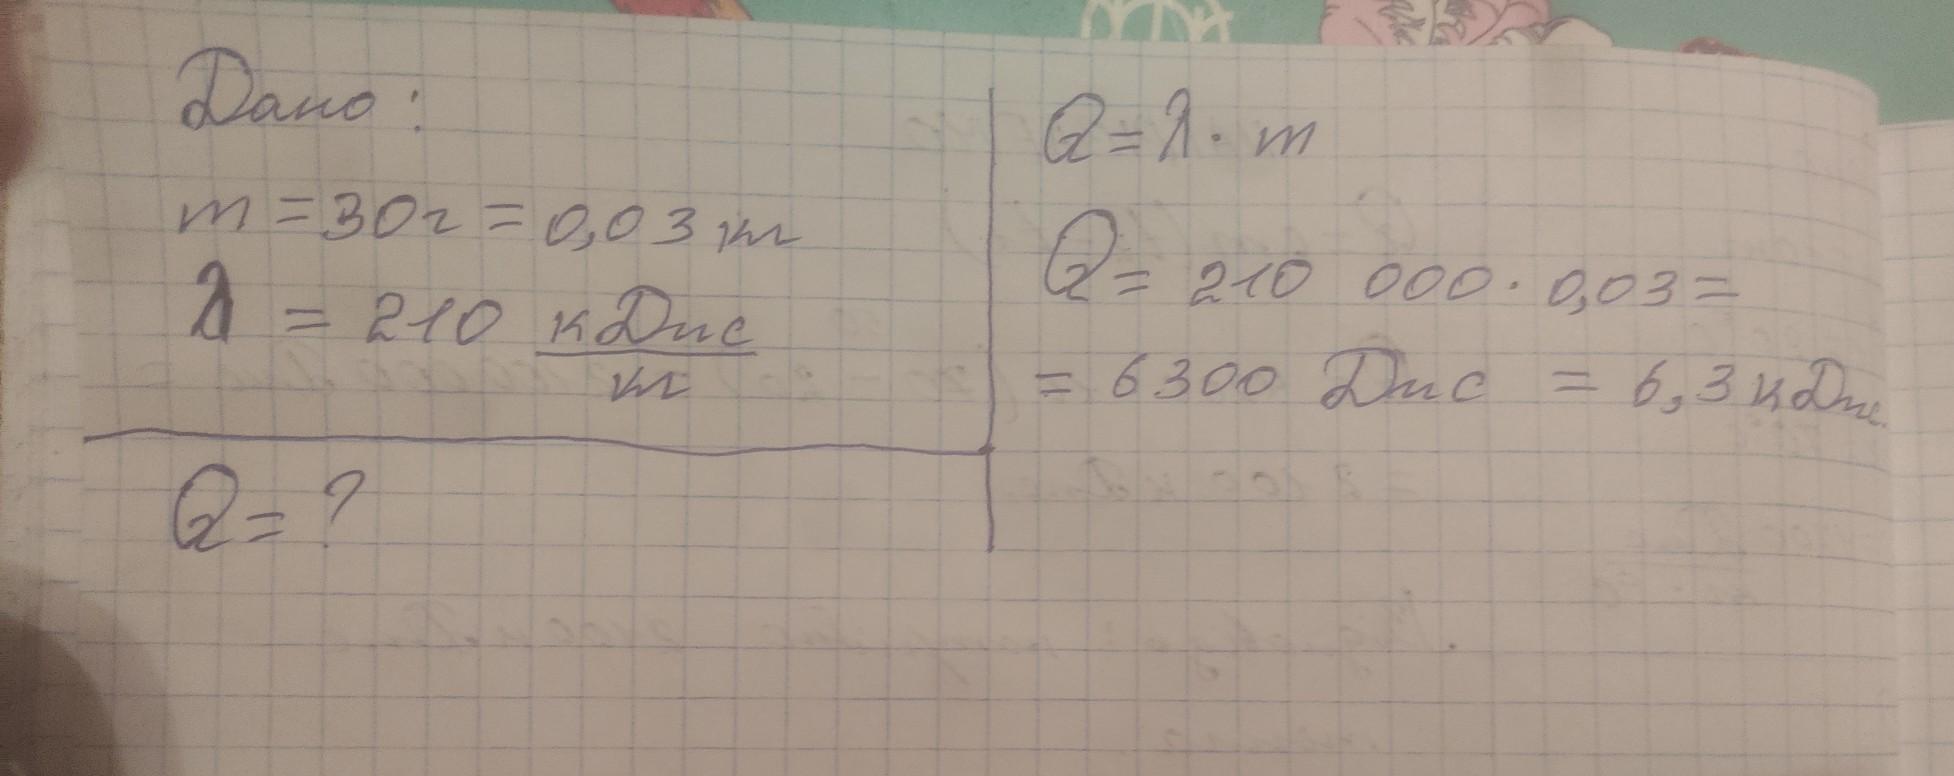 Дано:
m = 30г = 0,03 кг
λ = 210 кДж/кг
Q = ?
Q = λ · m
Q = 210 000 · 0,03 =
= 6300 Дж = 6,3 кДж.